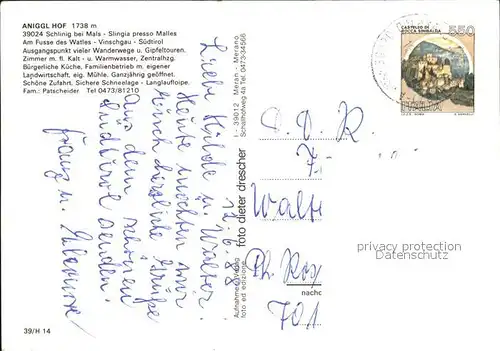 ANIGGL HOF 1738 m
39024 Schlinig bei Mals - Slingia presso Malles
Am Fusse des Watles - Vinschgau - Südtirol
Ausgangspunkt vieler Wanderwege u. Gipfeltouren.
Zimmer m. fl. Kalt - u. Warmwasser, Zentralhzg.
Bürgerliche Küche, Familienbetrieb m. eigene
Landwirtschaft, eig. Mühle. Ganzjährig geöffnet.
Schöne Zufahrt. Sichere Schneelage - Langlaufloipe.
Fam.: Patscheider Tel 0473/81210
Liebe Hilde u. Walter.
Heute möchten wir
Euch herzliche Grüße
aus dem schönen
Südtirol senden.
Franz u.
39/H 14
I - 39012 Meran - Merano
Schallhofweg 4a Tel. 0473-34566
foto dieter drescher
Aufnahme u. Verlag
foto ed edizione
CASTELLO DI
ROCCA SINIBALDA
550
Walt
Ph.
701
privacy protection
Datenschutz